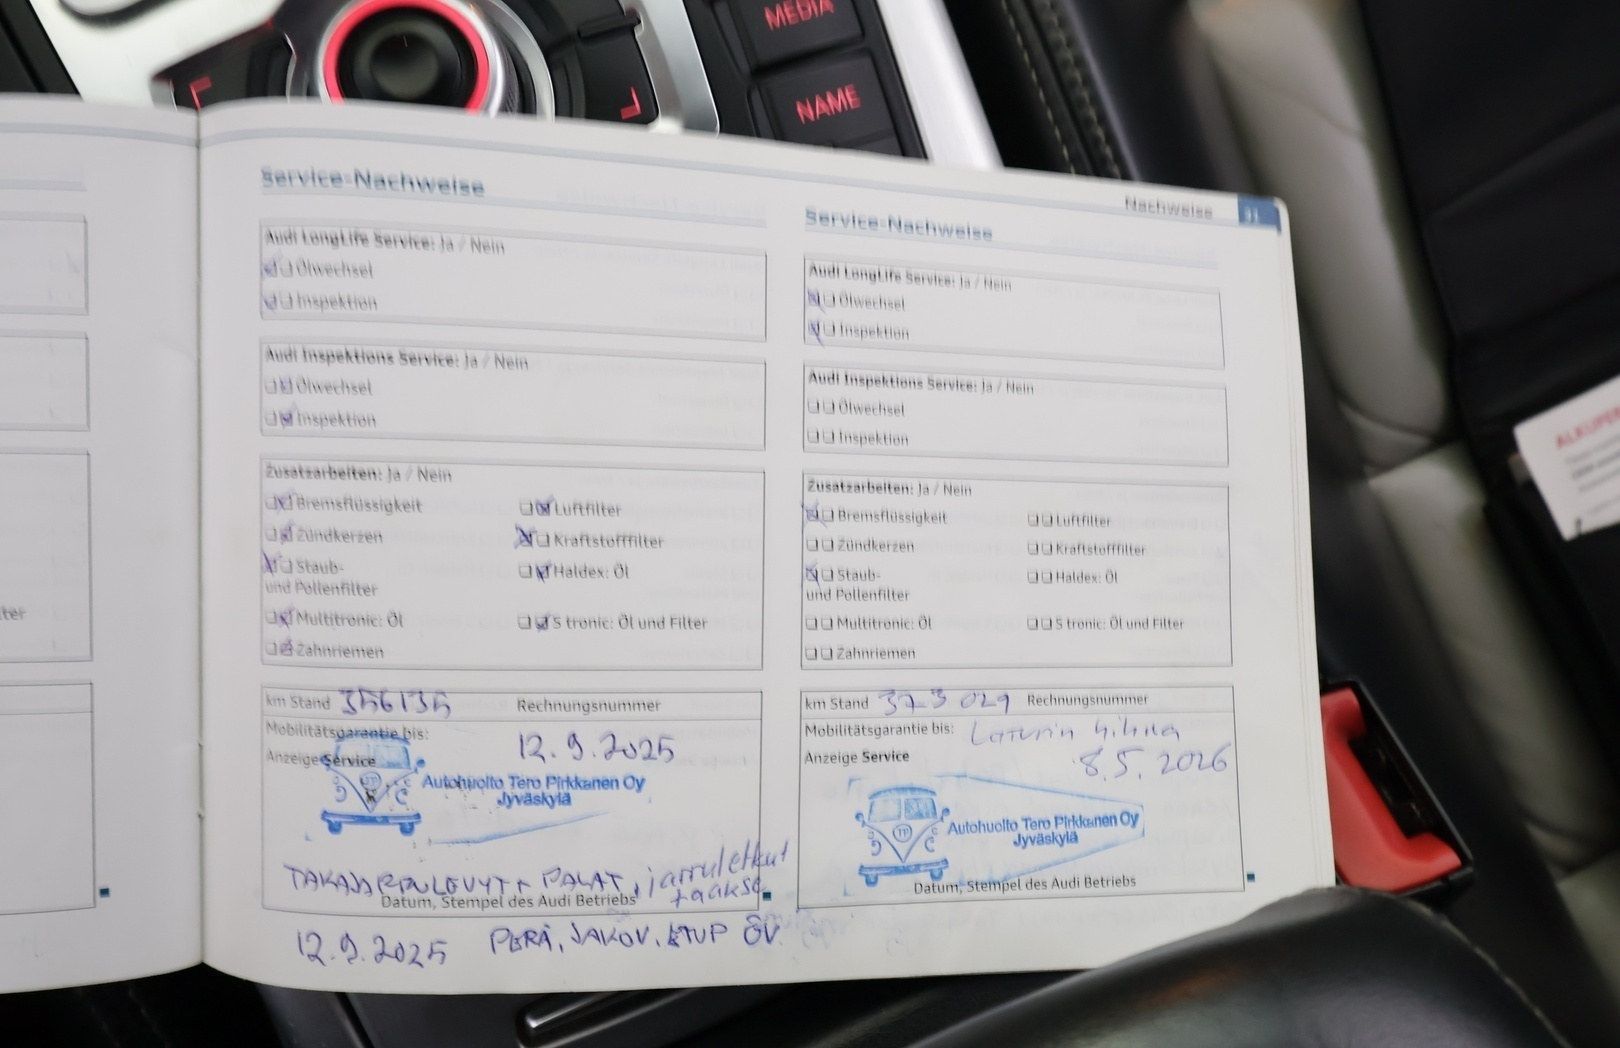 MEDIA
NAME
Nachweise 31
Service-Nachweise
Audi LongLife Service: Ja / Nein
Ölwechsel
Inspektion
Audi Inspektions Service: Ja / Nein
Ölwechsel
Inspektion
Zusatzarbeiten: Ja / Nein
Bremsflüssigkeit
Luftfilter
Zündkerzen
Kraftstofffilter
Staub-
und Pollenfilter
Haldex: Öl
Multitronic: Öl
S tronic: Öl und Filter
Zahnriemen
km Stand 356135 Rechnungsnummer
Mobilitätsgarantie bis:
12.9.2025
Anzeige Service
Autohuolto Tero Pirkkanen Oy
Jyväskylä
TAKAJARRULEVYT + PALAT, jarruletkut
taakse
Datum, Stempel des Audi Betriebs
12.9.2025 PERÄ, JAKOV, ETUP ÖV.
Service-Nachweise
Audi LongLife Service: Ja / Nein
Ölwechsel
Inspektion
Audi Inspektions Service: Ja / Nein
Ölwechsel
Inspektion
Zusatzarbeiten: Ja / Nein
Bremsflüssigkeit
Luftfilter
Zündkerzen
Kraftstofffilter
Staub-
und Pollenfilter
Haldex: Öl
Multitronic: Öl
S tronic: Öl und Filter
Zahnriemen
km Stand 373 029 Rechnungsnummer
Mobilitätsgarantie bis: Laturin hihna
Anzeige Service
8.5.2026
TP
Autohuolto Tero Pirkkanen Oy
Jyväskylä
Datum, Stempel des Audi Betriebs